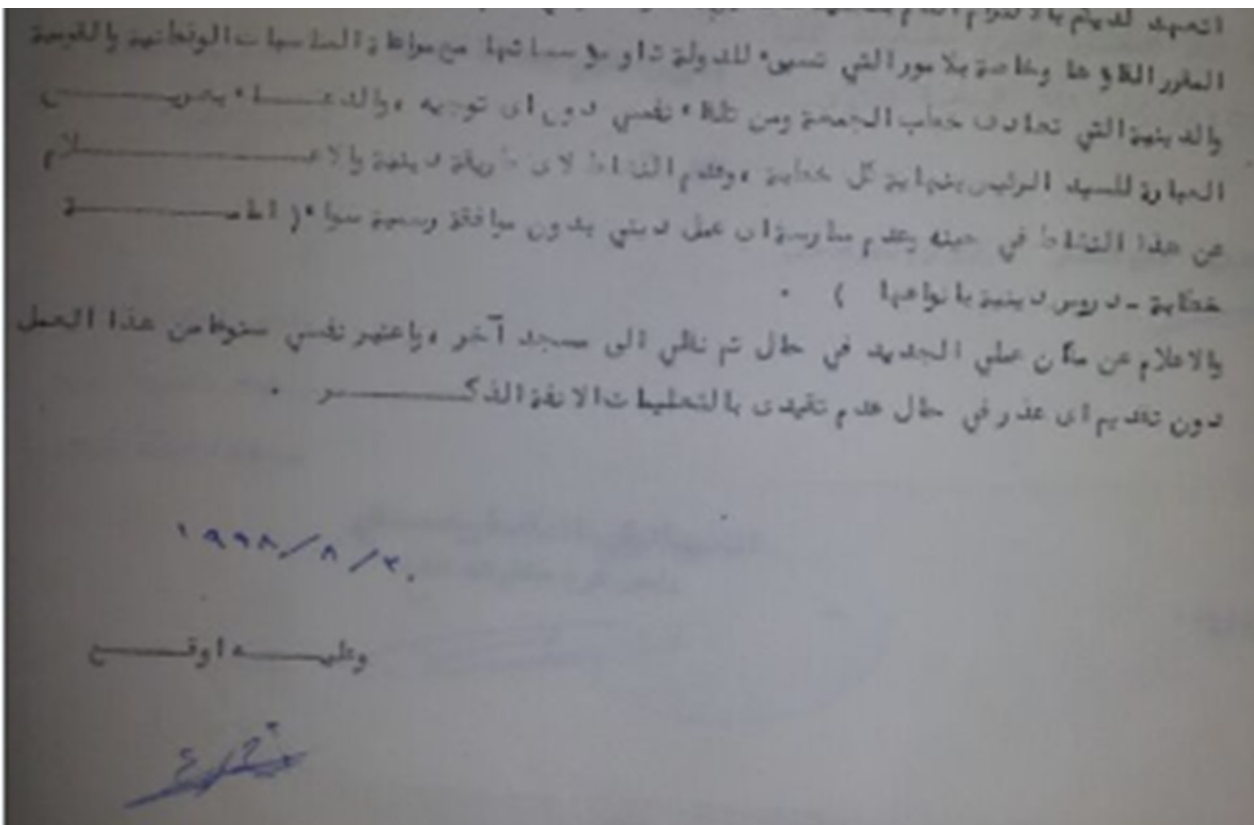 اتعهد لديكم بالالتزام التام
المقرر القاؤها وخاصة بلامور التي تسيء للدولة او مؤسساتها مع مراعاة المناسبات الوطنية والقومية
والدينية التي تصادف خطاب الجمعة ومن تلقاء نفسي دون اى توجيه ،والدعـــاء بصريـــــح
العبارة للسيد الرئيس بنهاية كل خطابة ،وعدم النشاط لاى طريقة دينية والاعـــــــــلام
عن هذا النشاط في حينه وعدم ممارسة اى عمل ديني بدون موافقة رسمية سواء ( امامـــــــة
خطابة - دروس دينية بانواعها ) .
والاعلام عن مكان عملي الجديد في حال تم نقلي الى مسجد آخر ،واعتبر نفسي من هذا العمل
دون تقديم اى عذر في حال عدم تقيدى بالتعليمات الانفة الذكــــــــر .
١٩٩٨/٨/٢٠
وعليـــــه اوقـــــع